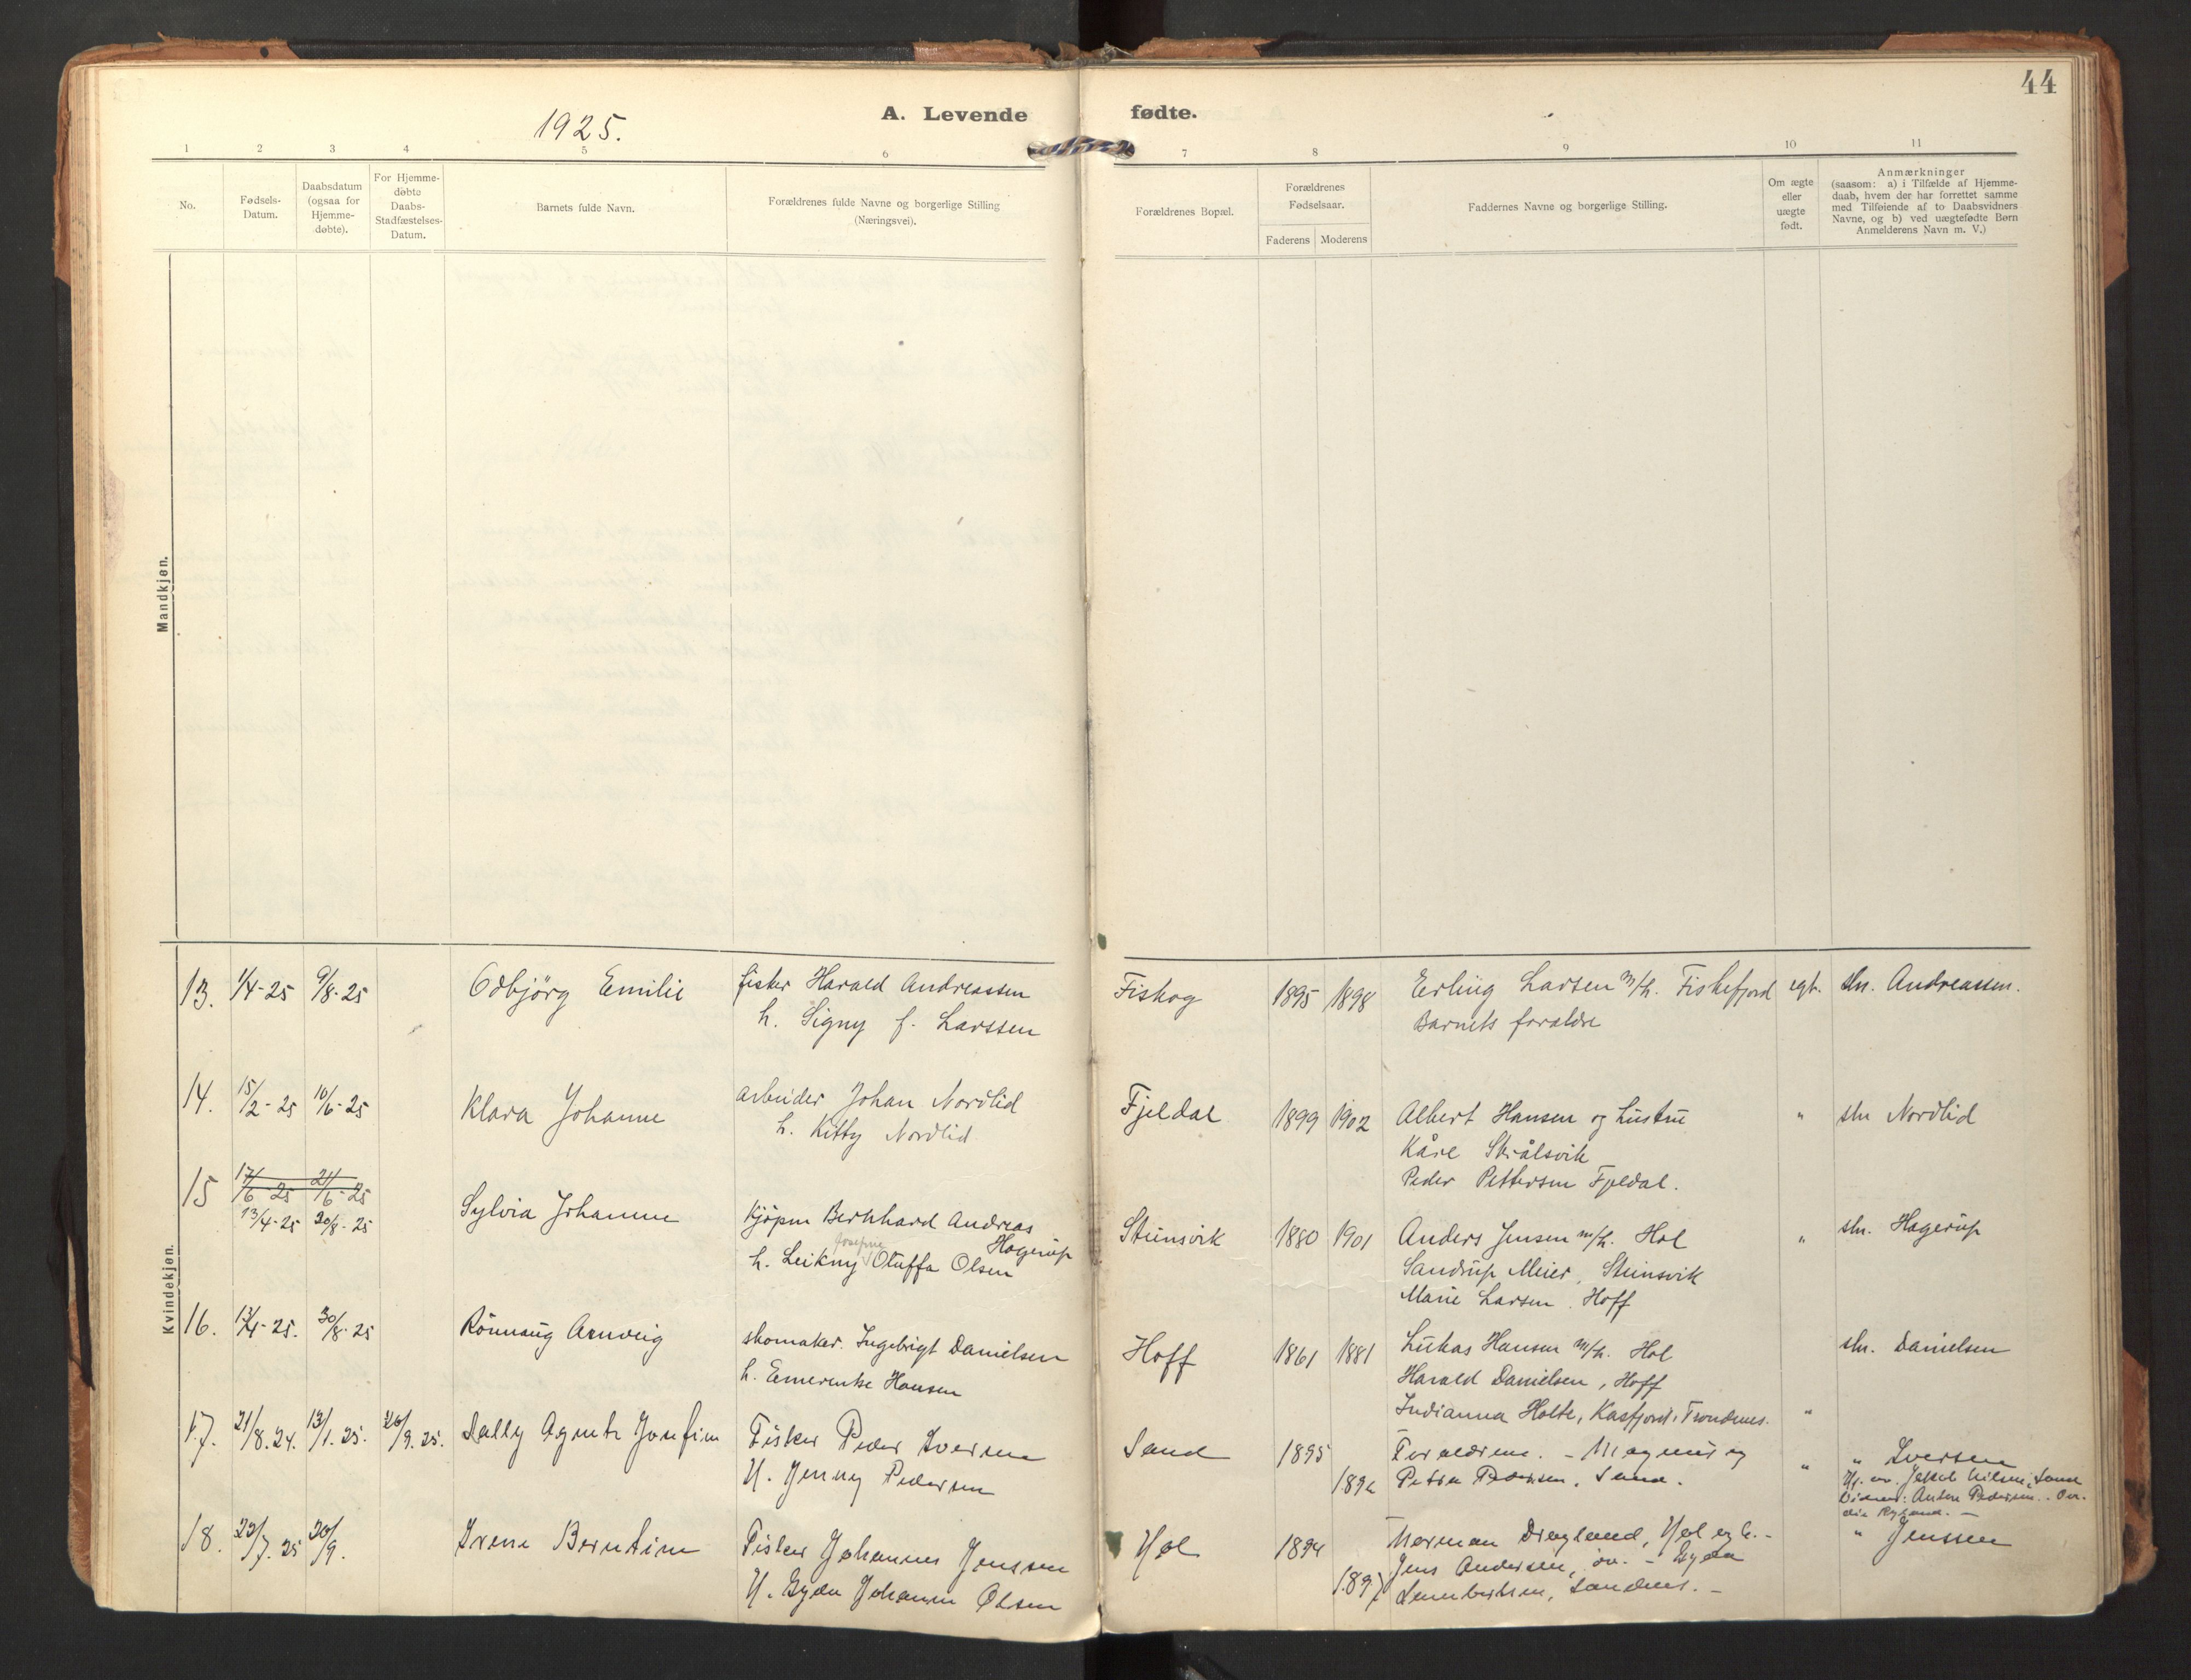 44
1925.
A. Levende fødte.
1 2 3 4 5 6 7 8 9 10 11
No.
Fødsels-
Datum.
Daabsdatum
(ogsaa for
Hjemme-
døbte).
For Hjemme-
døbte
Daabs-
Stadfæstelses-
Datum.
Barnets fulde Navn.
Forældrenes fulde Navne og borgerlige Stilling
(Næringsvei).
Forældrenes Bopæl.
Forældrenes
Fødselsaar.
Faderens Moderens
Faddernes Navne og borgerlige Stilling.
Om ægte
eller
uægte
født.
Anmærkninger
(saasom: a) i Tilfælde af Hjemme-
daab, hvem der har forrettet samme
med Tilføiende af to Daabsvidners
Navne, og b) ved uægtefødte Børn
Anmelderens Navn m. V.)
Mandkjøn.
Kvindekjøn.
13. 1/4-25 9/8-25 Odbjörg Emilie fisker Harald Andreassen Fiskog 1895 1898 Erling Larsen m/h. Fiskefjord egt. sln. Andreassen.
h. Signy f. Larssen Barnets foraldre
14. 15/2-25 10/6-25 Klara Johanne arbeider Johan Nordlid Fjeldal 1899 1902 Albert Hansen og hustru " sln Nordlid
h. Kitty Nordlid Kåre Strålsvik
Peder Pettersen Fjeldal.
15 17/6-25 21/6-25
13/4-25 20/8-25 Sylvia Johanne Kjøpm Bernhard Andreas Steinsvik 1880 1901 Anders Jensen m/h. Hol " sln. Hagerup
Hagerup
Josefine
h. Leikny Oluffa Olsen Sandrup Meier, Steinsvik
Marie Larsen, Hoff
16. 13/4-25. 30/8-25 Rönnaug Arnveig skomaker. Ingebrigt Danielsen Hoff 1861 1881 Lukas Hansen m/h. Hol sln. Danielsen
h. Emerentse Hansen Harald Danielsen, Hoff
Indianna Holte, Kasfjord, Trondenes. "
17. 21/8.24. 13/1.25. 20/9.25. Dally Agnete Josefine Fisker Peder Iversen Sand 1895 Foraldrene. - Magnus og " " Iversen
H. Jenny Pedersen 1892 Petra Pedersen, Sand.
Hj. av. Jakob Nilsen, Sand
Vidner: Anton Pedersen.
18. 22/7.25 20/9. Irene Berntine Fisker Johannes Jenssen Hol 1894 Norman Dragland, Hol og h. - " Jenssen
H. Gyda Johanne Olsen 1897 Jens Andersen, iv. - Gyda
Lambertsen, Sandnes. -